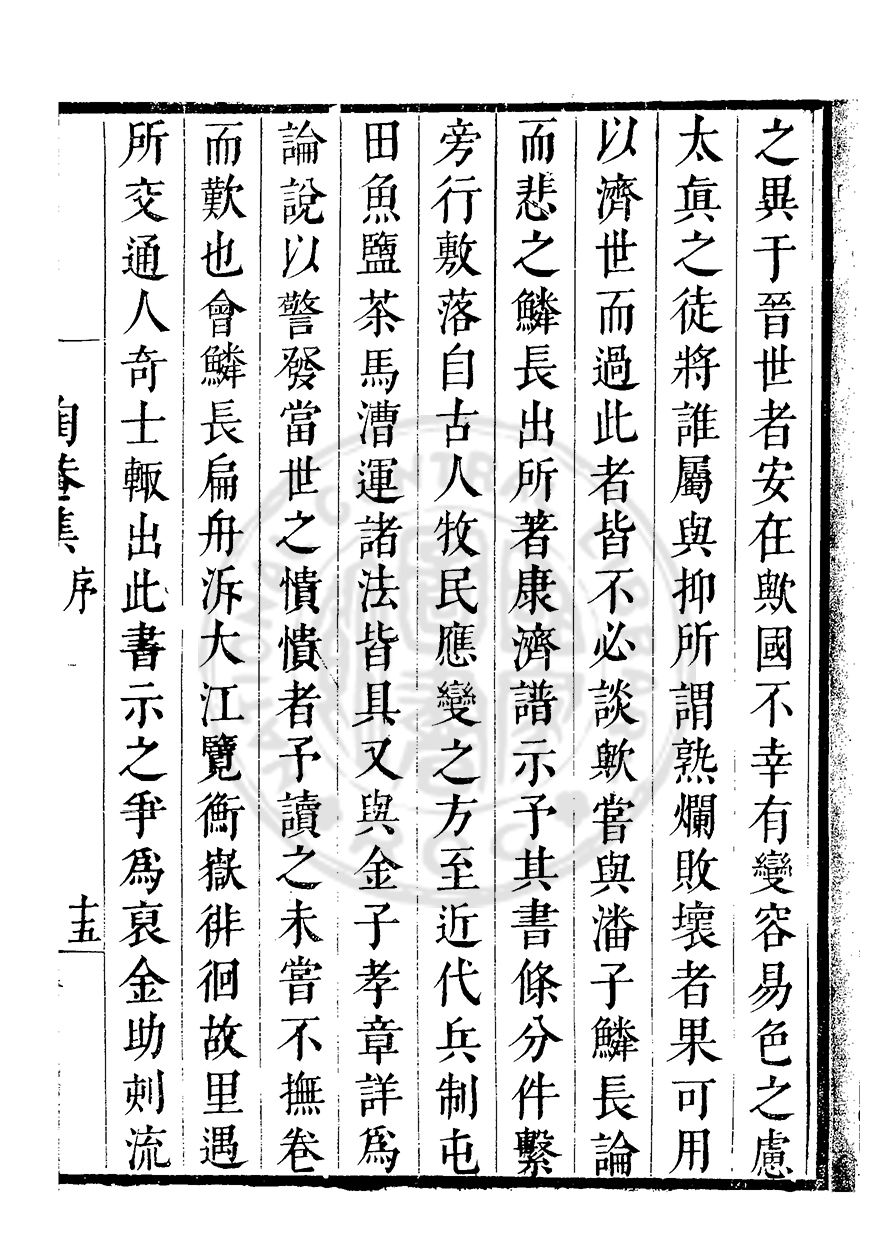 之異于晉世者安在歟國不幸有變容易色之慮
太眞之徒將誰屬與抑所謂熟爛敗壞者果可用
以濟世而過此者皆不必談歟嘗與潘子鱗長論
而悲之鱗長出所著康濟譜示予其書條分件繫
旁行敷落自古人牧民應變之方至近代兵制屯
田魚鹽茶馬漕運諸法皆具又與金子孝章詳爲
論說以警發當世之憒憒者予讀之未嘗不撫卷
而歎也會鱗長扁舟泝大江覽衡嶽徘徊故里遇
所交通人奇士輙出此書示之爭爲裒金助剌流
陶菴集 序 十五